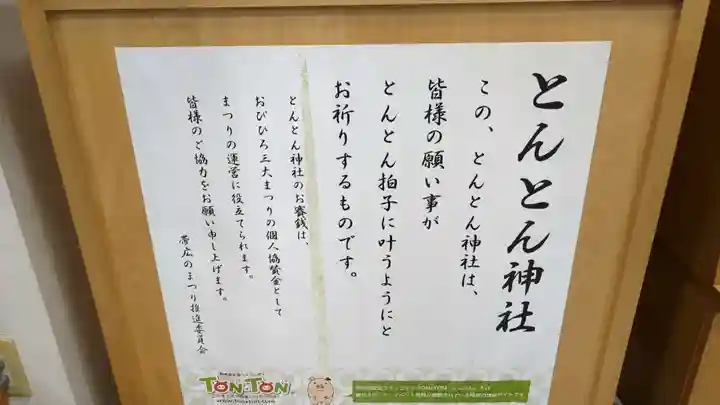 とんとん神社
この、とんとん神社は、
皆様の願い事が
とんとん拍子に叶うようにと
お祈りするものです。
とんとん神社のお賽銭は、
おびひろ三大まつりの個人協賛金として
まつりの運営に役立てられます。
皆様のご協力をお願い申し上げます。
帯広のまつり推進委員会
TONTON